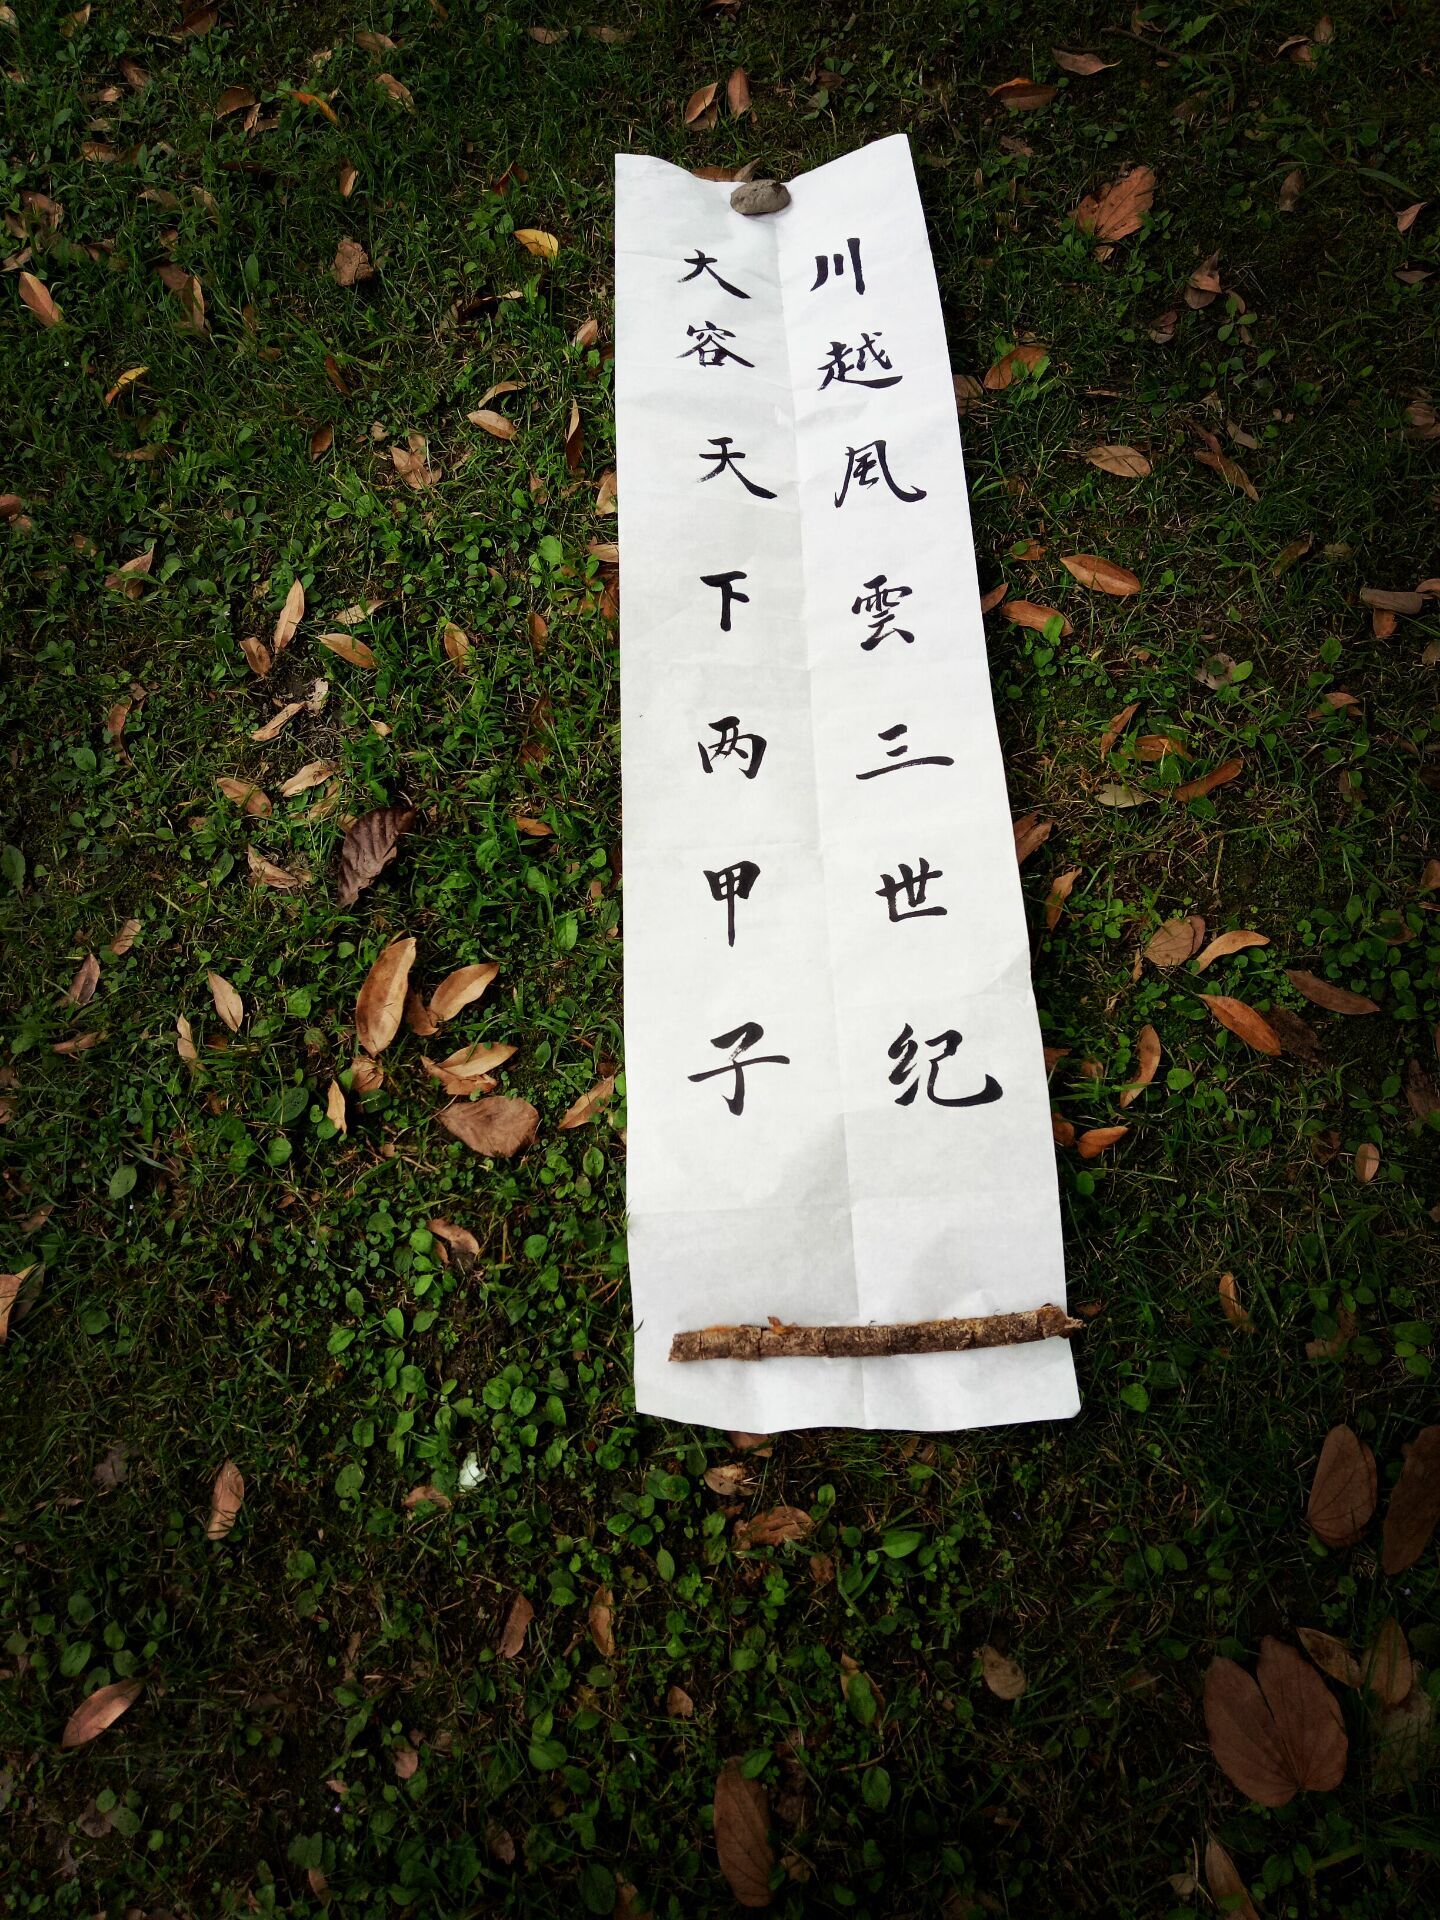 川越风雲三世纪
大容天下两甲子